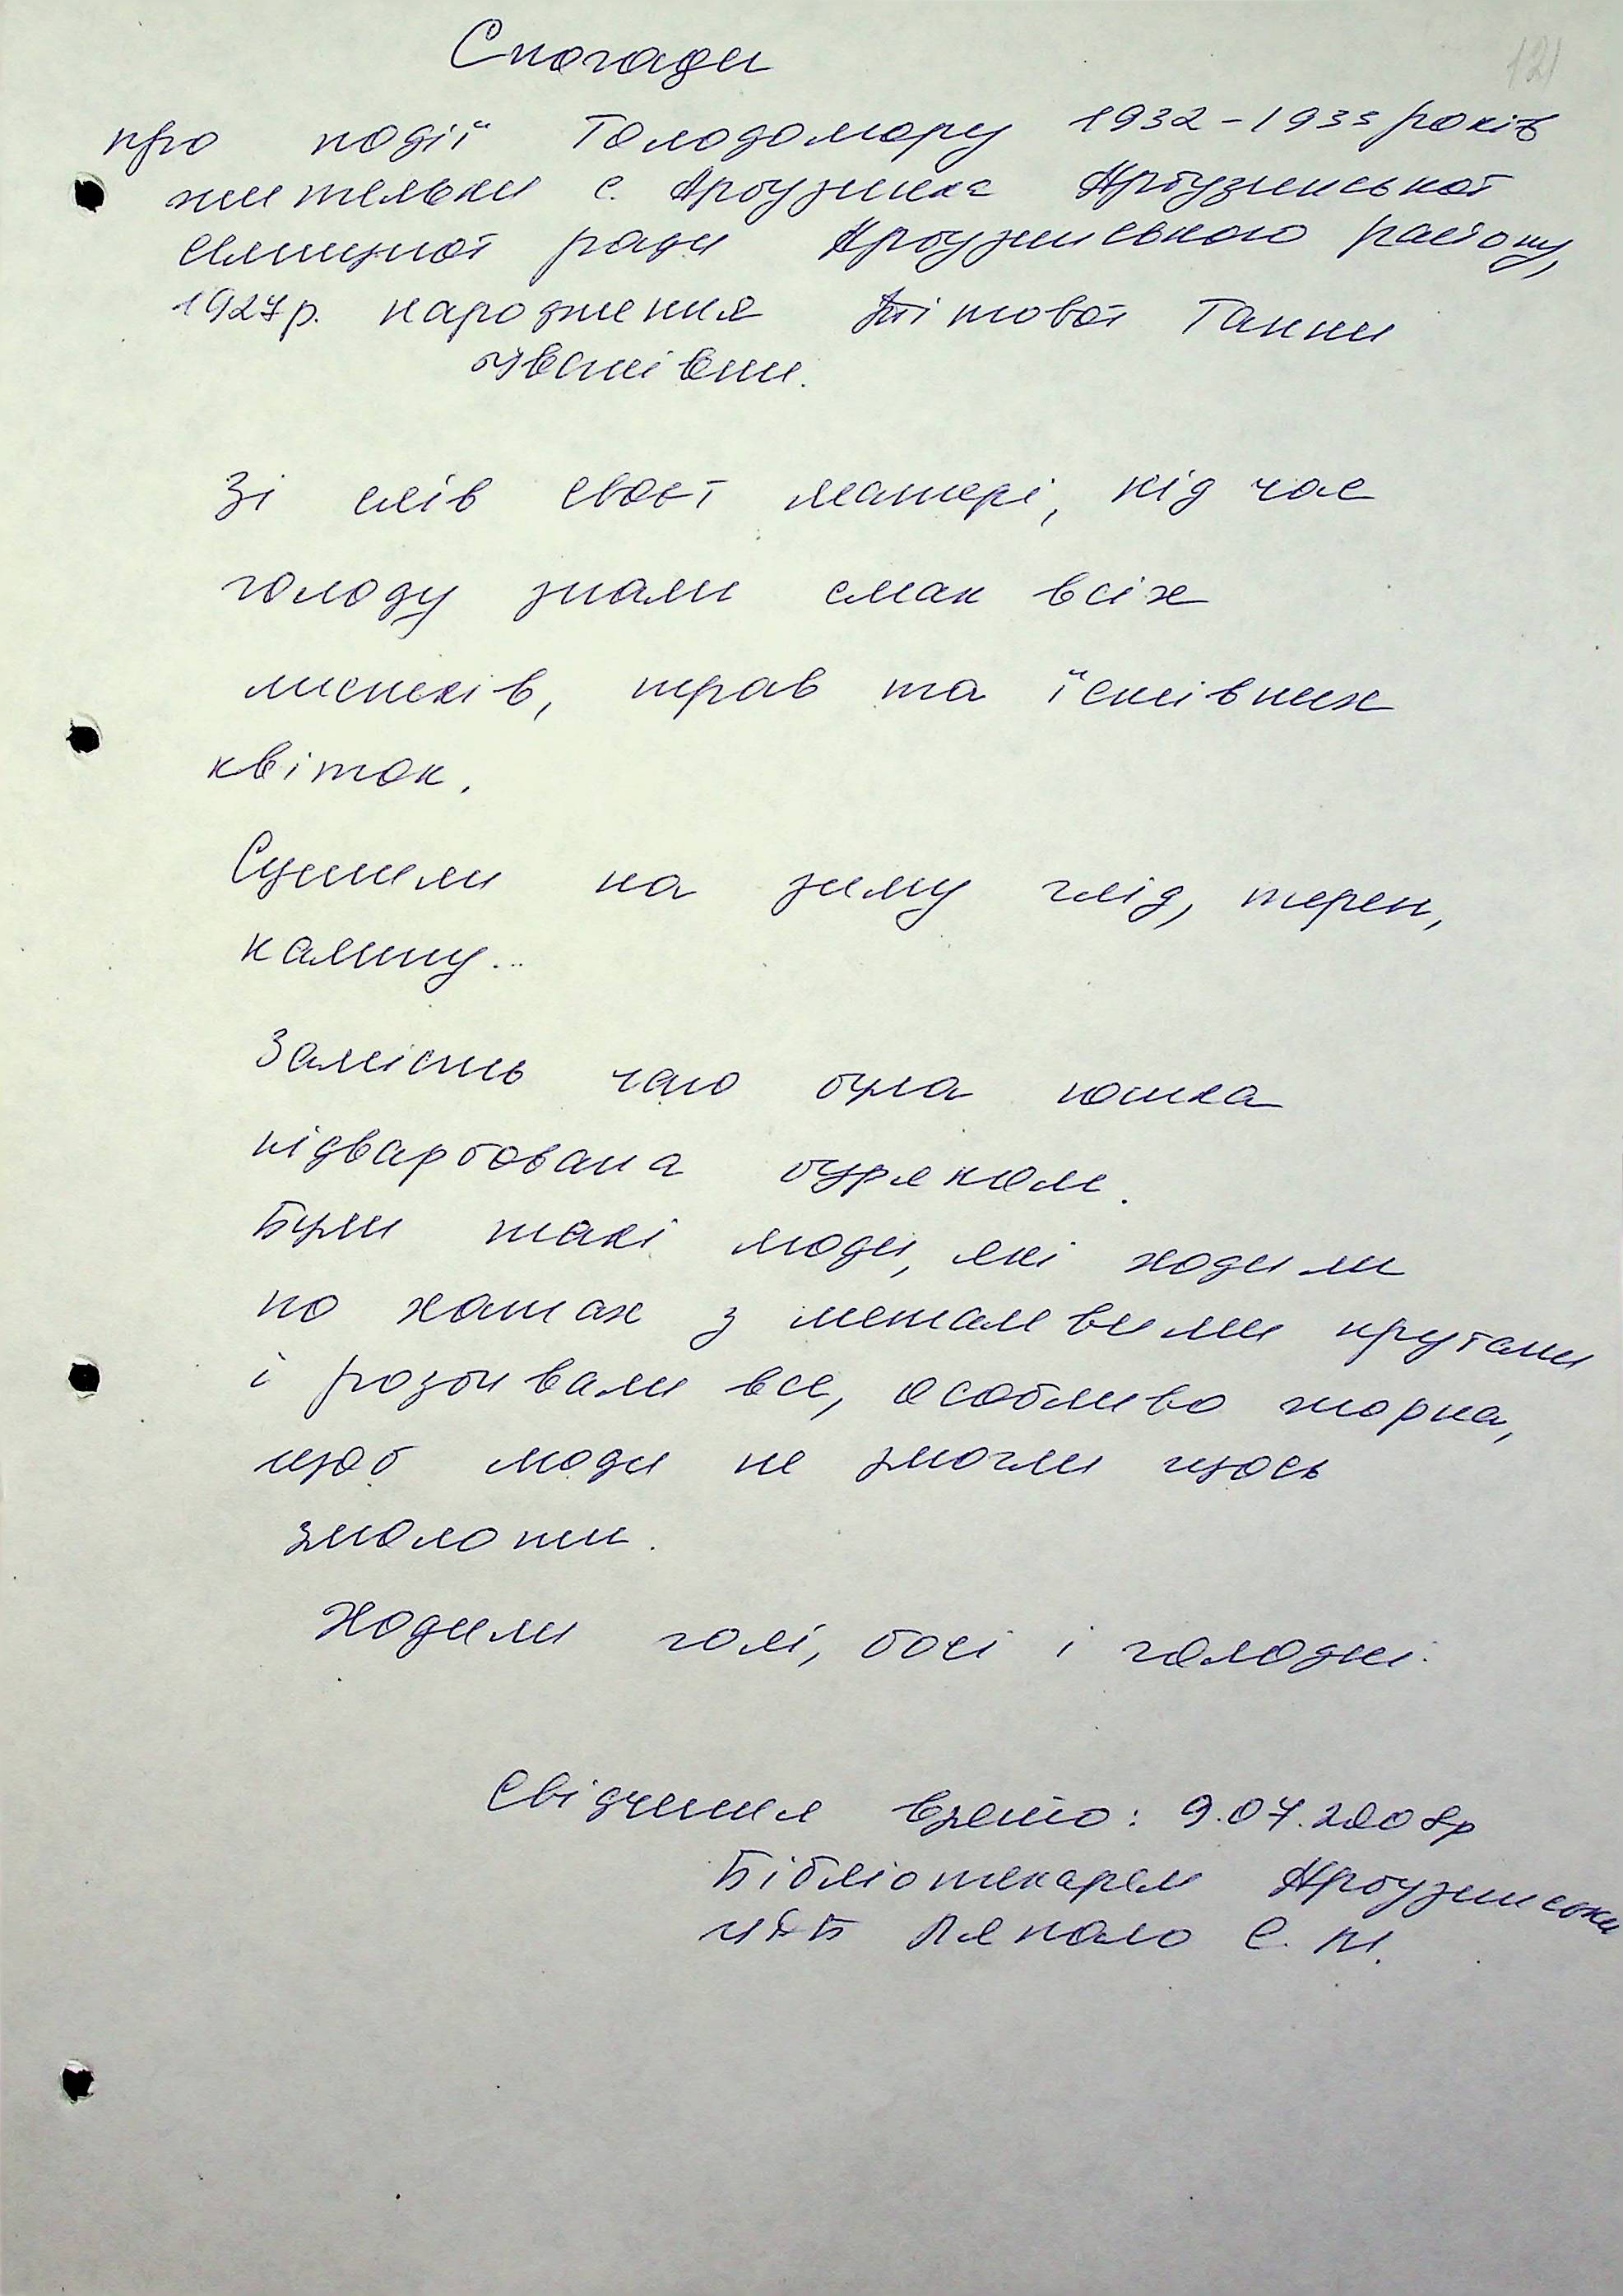 121
Спогади
про події Голодомору 1932-1933 років
жительки с. Арбузинка Арбузинської
селищної ради Арбузинського району,
1927р. народження Тітової Ганни
Іванівни.
Зі слів своєї матері, під час
голоду знали смак всіх
листків, трав та їстівних
квіток.
Сушили на зиму глід, терен,
калину...
Замість чаю була юшка
підварбована буряком.
Були такі люди, які ходили
по хатах з металевими прутами
і розбивали все, особливо жорна,
щоб люди не змогли щось
змолоти.
Ходили голі, босі і голодні.
Свідчення взято: 9.07.2008р
Бібліотекарем Арбузинської
С. М.